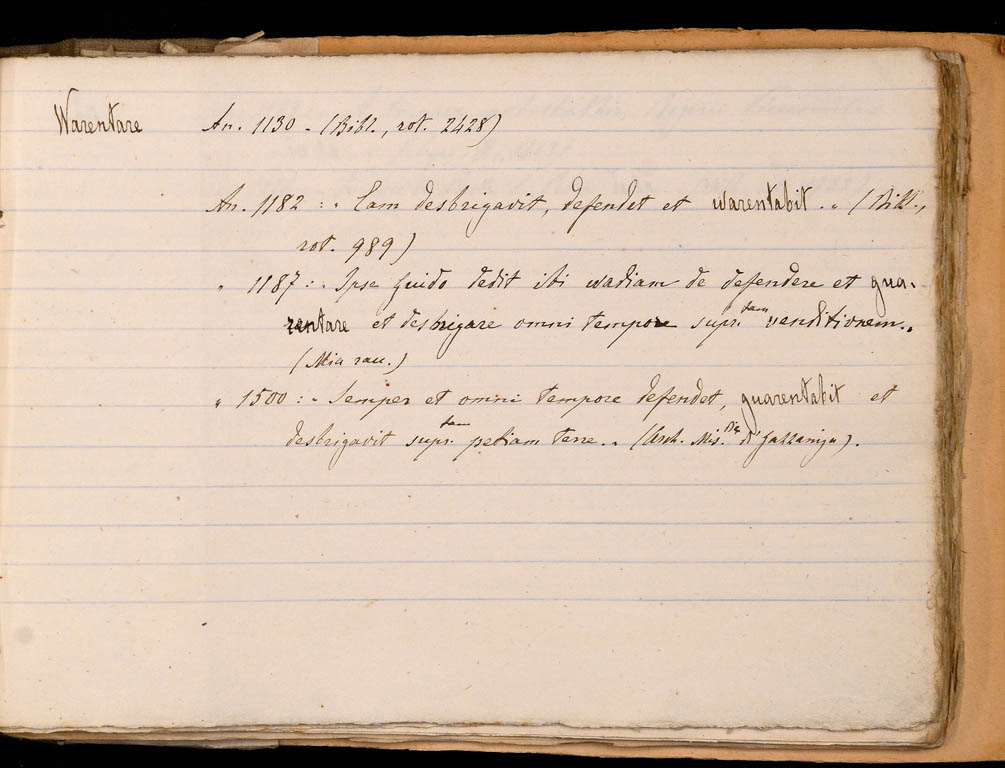 Warentare An. 1130 - (Bibl., rot. 2428)
An. 1182 : " Eam desbrigavit, defendet et warentabit. " (Bibl.,
rot. 989)
" 1187 : " Ipse Guido dedit ibi wadiam de defendere et gua-
rentare et desbrigare omni tempore supr.tam venditionem. "
(Mia rac.)
" 1500 : " Semper et omni tempore defendet, guarentabit et
desbrigavit supr.tam petiam terre. " (Arch. Mis.dia di Gazzaniga).